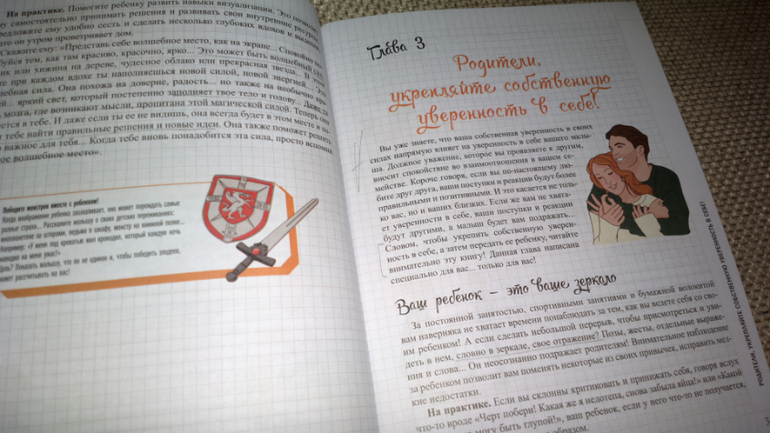 На практике. Помогите ребенку развить навыки визуализации. Это позволит
му самостоятельно принимать решения и развивать свои внутренние
редложите ему удобно сесть и сделать несколько глубоких вдохов и
что он утром проветривает дом.
Скажите ему: «Представь себе волшебное место, как на экране...
буйся тем, как там красиво, красочно, ярко... Это может быть волшебный
ик или хижина на дереве, чудесное облако или прекрасная звезда... И
те при каждом вдохе ты наполняешься новой силой, новой энергией...
ебная сила. Она похожа на доверие, радость... но также на необычно
й... яркий свет, который постепенно заполняет твое тело и голову... Даже
ь мозга, где возникают мысли, пропитана этой магической силой. Теперь
ется в тебе. И даже если ты ее не видишь, она всегда будет в этом месте и
т тебе найти правильные решения и новые идеи. Она также поможет решить
о важное для тебя... Когда вновь понадобится эта сила, просто вспомни
ое волшебное место».
Победите монстров вместе с ребенком!
Когда воображение ребенка зашкаливает, оно может порождать самые
разные страхи... Расскажите малышу о своих детских переживаниях:
привидение за шторами, ведьма в шкафу, монстр на книжной полке...
Например: «У меня под кроватью жил крокодил, который каждую ночь
нападал на меня ужас!»
Цель? Показать малышу, что он не одинок и, чтобы победить злодеев,
может рассчитывать на вас!
Глава 3
Родители,
укрепляйте собственную
уверенность в себе!
Вы уже знаете, что ваша собственная уверенность в своих
силах напрямую влияет на уверенность в себе вашего малы-
ша. Должное уважение, которое вы проявляете к другим,
вносит спокойствие во взаимоотношения в вашем се-
мействе. Короче говоря, если вы по-настоящему лю-
бите друг друга, ваши поступки и реакции будут более
правильными и позитивными. И это касается не толь-
ко вас, но и ваших близких. Если же вам не хвата-
ет уверенности в себе, ваши поступки и реакции
будут другими, а малыш будет вам подражать...
Словом, чтобы укрепить собственную уверен-
ность в себе, а затем передать ее ребенку, читайте
внимательно эту книгу! Данная глава написана
специально для вас... только для вас!
Ваш ребенок – это ваше зеркало
За постоянной занятостью, спортивными занятиями и бумажной волокитой
вам наверняка не хватает времени понаблюдать за тем, как вы ведете себя со сво-
им ребенком! А если сделать небольшой перерыв, чтобы присмотреться и уви-
деть в нем, словно в зеркале, свое отражение? Позы, жесты, отдельные выраже-
ния и слова... Он неосознанно подражает родителям! Внимательное наблюдение
за ребенком позволит вам поменять некоторые из своих привычек, исправить мел-
кие недостатки.
На практике. Если вы склонны критиковать и принижать себя, говоря вслух
что-то вроде «Черт побери! Какая же я недотепа, снова забыла яйца!» или «Какой
могу быть глупой!», ваш ребенок, если у него что-то не получается,
образом.
РОДИТЕЛИ, УКРЕПЛЯЙТЕ СОБСТВЕННУЮ УВЕРЕННОСТЬ В СЕБЕ!